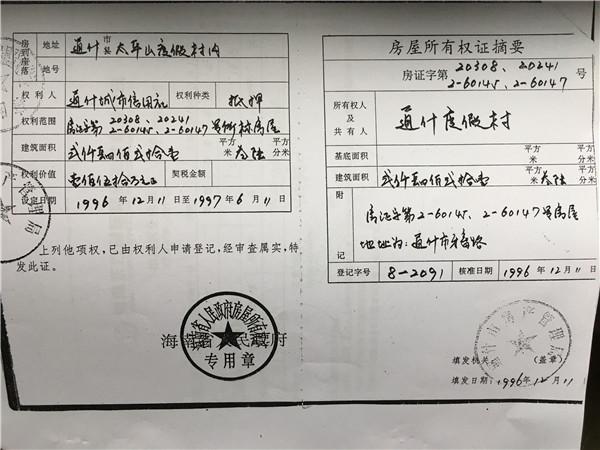 房屋座落
地址
通什市县太平山度假村内
地号
权利人
通什城市信用社
权利种类
抵押
权利范围
房证字第20308、20241
2-60145、2-60147号所标房屋
建筑面积
贰仟
佰贰拾壹
平方米
叁陆
平方分米
权利价值
壹佰伍拾万元正
契税金额
设定日期
1996年12月11日至1997年6月11日
上列他项权，已由权利人申请登记，经审查属实，特
发此证。
海南省人民政府
海南省人民政府房屋所有权
专用章
房屋所有权证摘要
房证字第20308、20241
2-60145、2-60147号
所有权人及共有人
通什度假村
基底面积
平方米
平方分米
建筑面积
贰仟
佰贰拾壹
平方米
叁陆
平方分米
附记
房证字第2-60145、2-60147号房屋
地址为：通什市
路
登记字号
8-2091
核准日期
1996年12月11日
通什市房产管理局
填发机关
（盖章）
填发日期：1996年12月11